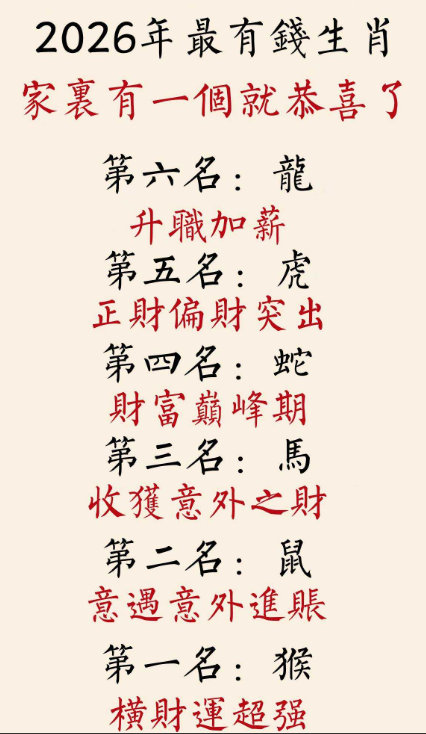 2026年最有錢生肖
家裏有一個就恭喜了
第六名：龍
升職加薪
第五名：虎
正財偏財突出
第四名：蛇
財富巔峰期
第三名：馬
收獲意外之財
第二名：鼠
意遇意外進賬
第一名：猴
橫財運超强